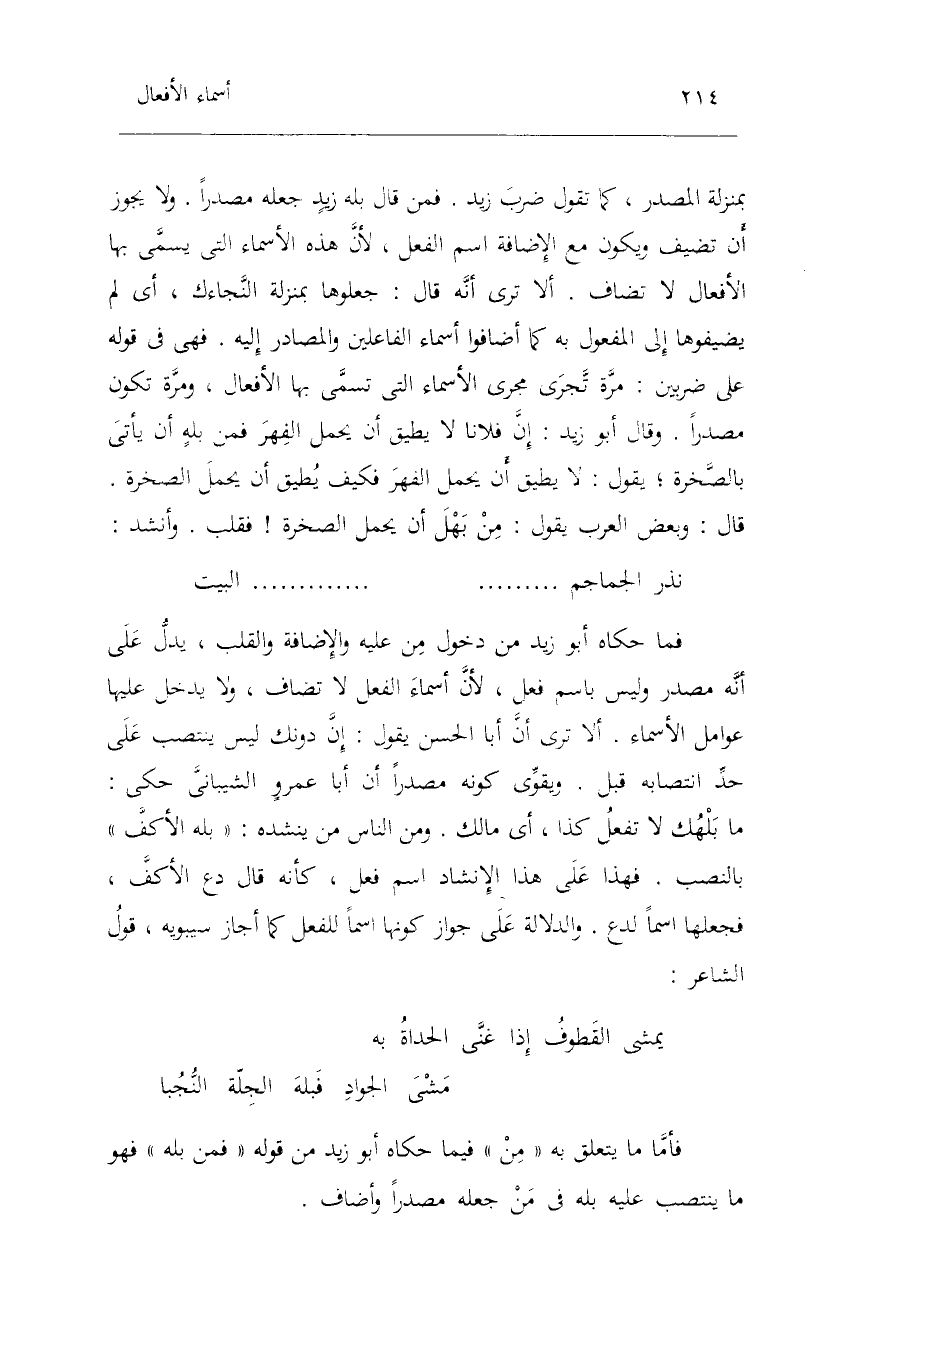 ٢١٤ أسماء الأفعال
بمنزلة المصدر ، كما تقول ضربَ زيد . فمن قال بله زيدٍ جعله مصدراً . ولا يجوز
أن تضيف ويكون مع الإضافة اسم الفعل ، لأنَّ هذه الأسماء التى يسمَّى بها
الأفعال لا تضاف . ألا ترى أنَّه قال : جعلوها بمنزلة النَّجاءك ، أى لم
يضيفوها إلى المفعول به كما أضافوا أسماء الفاعلين والمصادر إليه . فهى فى قوله
على ضربين : مرَّة تَّجرَى مجرى الأسماء التى تسمَّى بها الأفعال ، ومرَّة تكون
مصدراً . وقال أبو زيد : إنَّ فلانا لا يطيق أن يحمل الفِهرَ فمن بلهِ أن يأتىَ
بالصَّخرة ؛ يقول : لا يطيق أن يحمل الفهرَ فكيف يُطيق أن يحملَ الصخرة .
قال : وبعض العرب يقول : مِنْ بَهْلَ أن يحمل الصخرة ! فقلب . وأنشد :
نذر الجماجم ......... ............. البيت
فما حكاه أبو زيد من دخول مِن عليه والإضافة والقلب ، يدلُّ عَلَى
أنَّه مصدر وليس باسم فعل ، لأنَّ أسماءَ الفعل لا تضاف ، ولا يدخل عليها
عوامل الأسماء . ألا ترى أنَّ أبا الحسن يقول : إنَّ دونك ليس ينتصب عَلَى
حدِّ انتصابه قبل . ويقوِّى كونه مصدراً أن أبا عمروٍ الشيبانىَّ حكى :
ما بَلْهُك لا تفعلُ كذا ، أى مالك . ومن الناس من ينشده : « بله الأكفَّ »
بالنصب . فهذا عَلَى هذا الإنشاد اسم فعل ، كأنه قال دع الأكفَّ ،
فجعلها اسماً لدع . والدلالة عَلَى جواز كونها اسماً للفعل كما أجاز سيبويه ، قولُ
الشاعر :
يمشى القَطوفُ إذا غنَّى الحداةُ به
مَشْىَ الجوادِ فَبلهَ الجِلّة النُّجُبا
فأمَّا ما يتعلق به « مِنْ » فيما حكاه أبو زيد من قوله « فمن بله » فهو
ما ينتصب عليه بله فى مَنْ جعله مصدراً وأضاف .